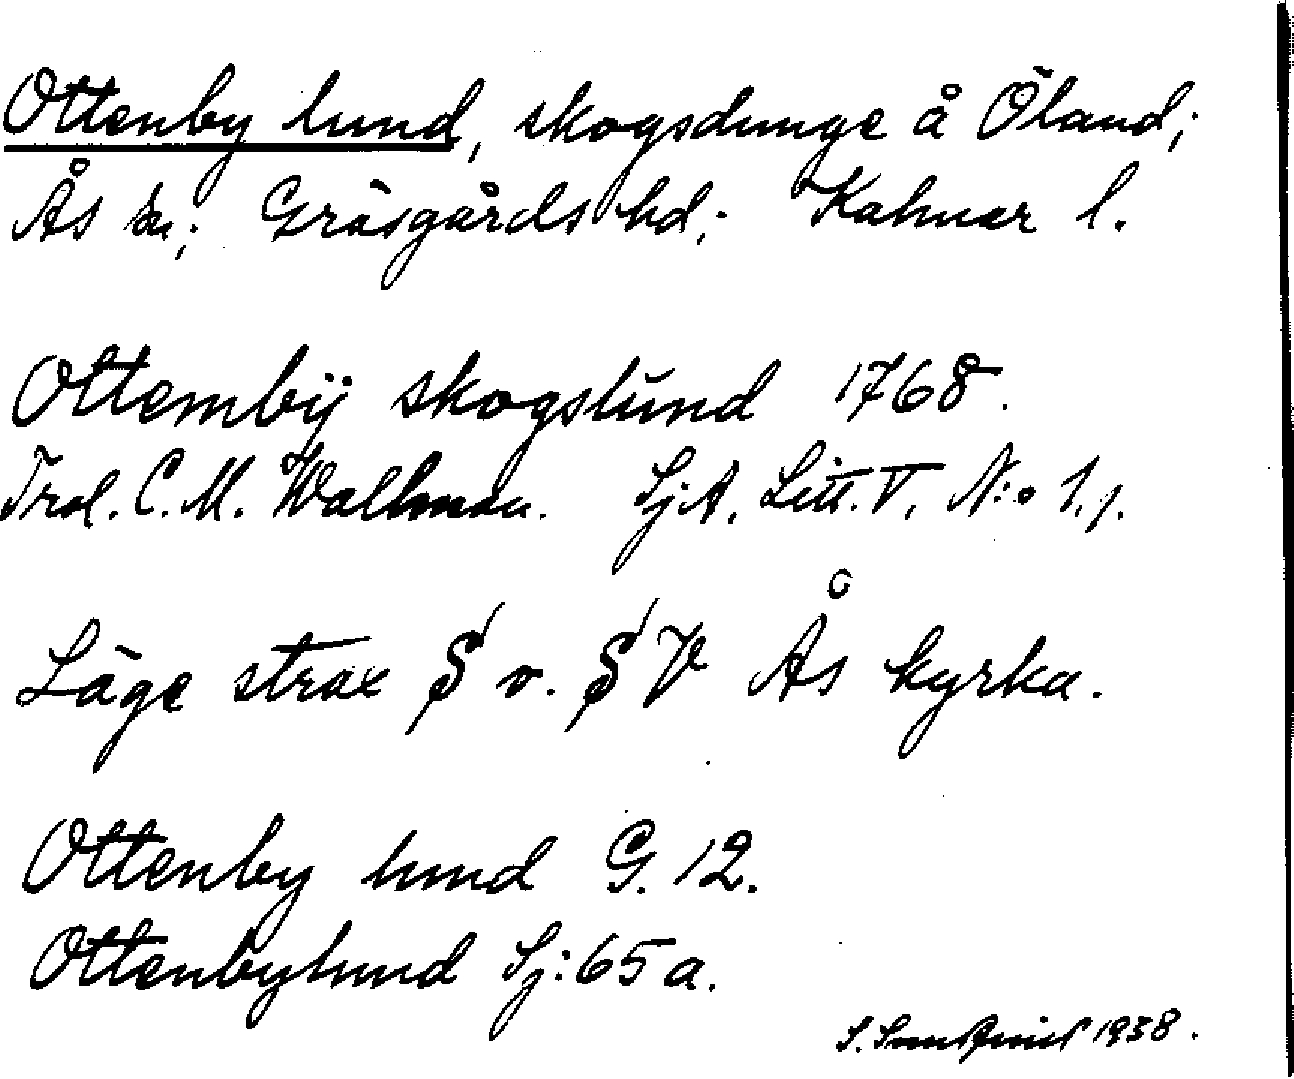 Ottenby lund, skogsdunge å Öland;
Ås sn; Gräsgårds hd; Kalmar l.
Ottembÿ skogslŭnd 1768.
Trol. C. M. Wallman. Sj A. Litt. V, N:o 1.
Läge strax S v. S V Ås kyrka.
Ottenby lund G. 12.
Ottenbylund Sj: 65 a.
S. 1938.